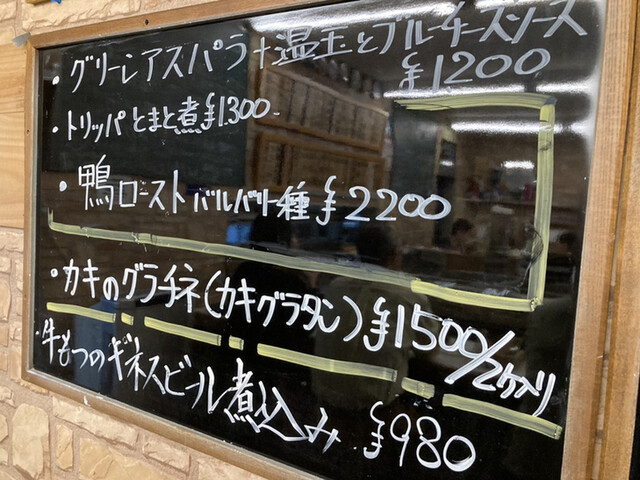 ・グリーンアスパラ+温玉とブルーチーズソース
¥1200
・トリッパとまと煮¥1300
・鴨ロースト バルバリー種 ¥2200
・カキのグラチネ(カキグラタン)¥1500/2ケ入り
・牛もつのギネスビール煮込み ¥980